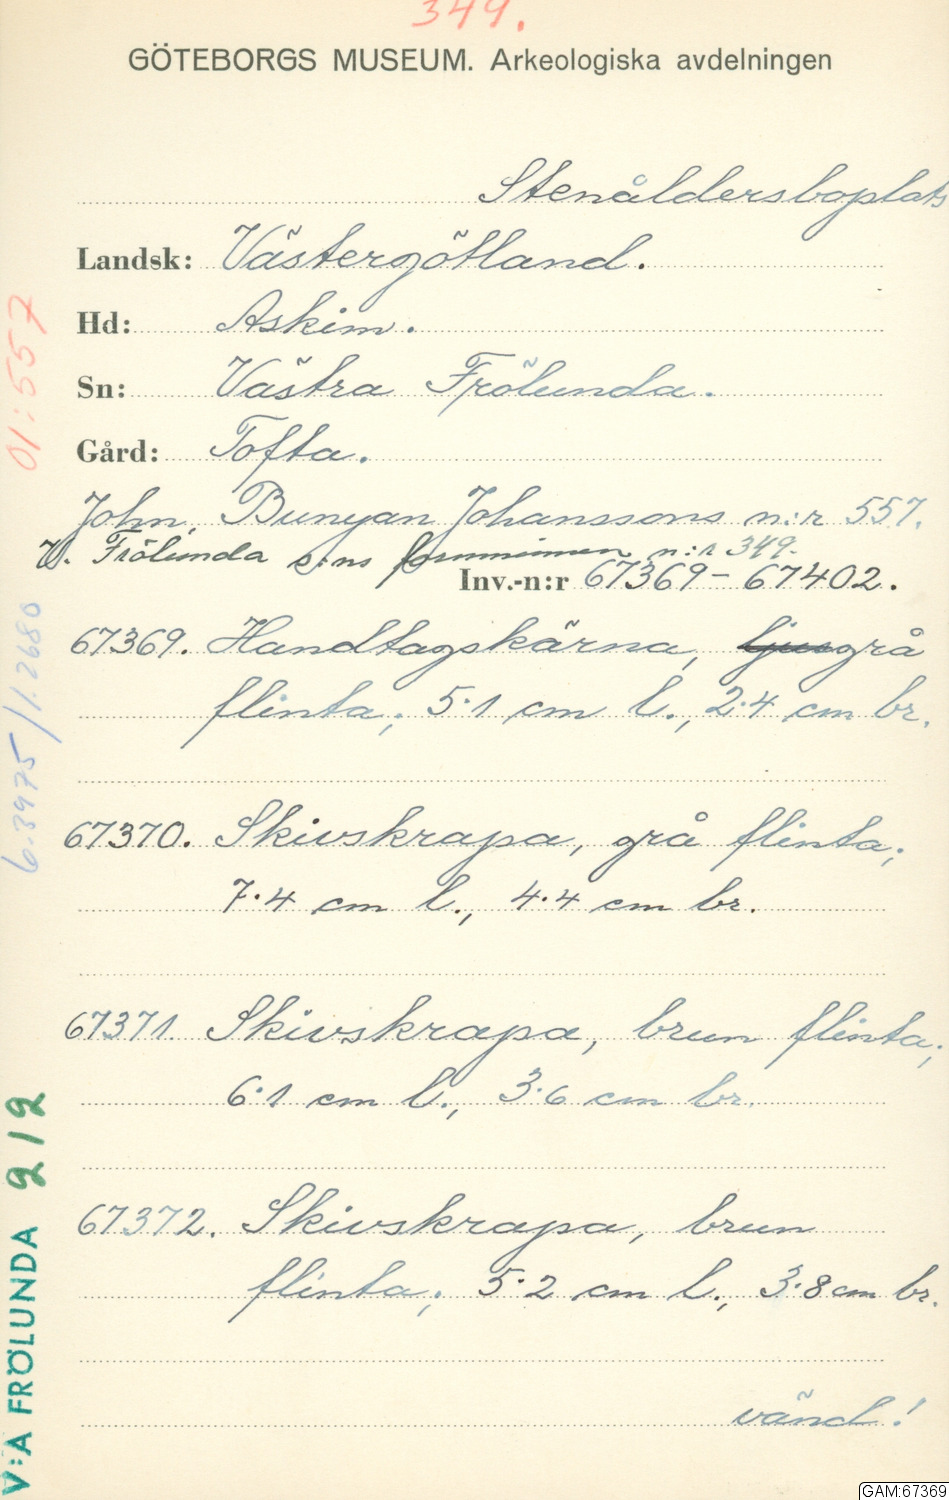 349.
GÖTEBORGS MUSEUM. Arkeologiska avdelningen
Stenåldersboplats
Landsk: Västergötland.
Hd: Askim.
Sn: Västra Frölunda.
Gård: Tofta.
John. Bunyan Johanssons n:r 557.
V. Frölunda s:ns fornminnen n:r 349.
Inv.-n:r 67369 – 67402.
67369. Handtagskärna, ljusgrå
flinta; 5.1 cm l., 2.4 cm br.
67370. Skivskrapa, grå flinta;
7.4 cm l., 4.4 cm br.
67371. Skivskrapa, brun flinta;
6.1 cm l., 3.6 cm br.
67372. Skivskrapa, brun
flinta; 5.2 cm l., 3.8 cm br.
vänd!
01:557
6:3975/1.2680
V:A FRÖLUNDA 212
GAM:67369